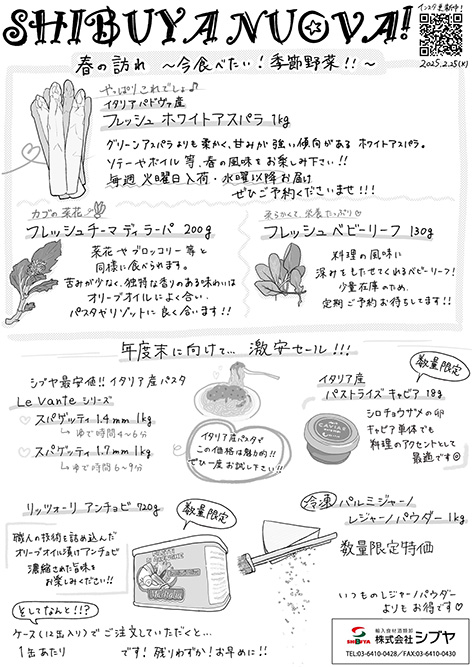 SHIBUYA NUOVA!
インスタ更新中!
2025.2.25(火)
春の訪れ ～今食べたい!季節野菜!!～
やっぱりこれでしょ♪
イタリアパドヴァ産
フレッシュ ホワイトアスパラ 1kg
グリーンアスパラよりも柔かく、甘みが強い傾向がある ホワイトアスパラ。
ソテーやボイル等、春の風味をお楽しみ下さい!!
毎週 火曜日入荷・水曜以降お届け
ぜひご予約くださいませ!!!
カブの菜花
フレッシュチーマ ディ ラーパ 200g
菜花やブロッコリー等と
同様に食べられます。
苦みが少なく、独特な香りのある味わいは
オリーブオイルによく合い、
パスタやリゾットに良く合います!!
柔らかくて、栄養たっぷり♡
フレッシュベビーリーフ 130g
料理の風味に
深みをもたせてくれるベビーリーフ!
少量在庫のため、
定期ご予約お待ちしてます!!
年度末に向けて… 激安セール!!!
シブヤ最安値!! イタリア産パスタ
Le Vante シリーズ
♡ スパゲッティ 1.4mm 1kg
↳ ゆで時間4～6分
♡ スパゲッティ 1.7mm 1kg
↳ ゆで時間6～9分
イタリア産パスタで
この価格は魅力的!!
ぜひ一度お試し下さい!!
数量限定
イタリア産
パストライズ キャビア 18g
シロチョウザメの卵
キャビア単体でも
料理のアクセントとして
最適です☺
CAVIAR
リッツォーリ アンチョビ 720g
数量限定
職人の技術を詰め込んだ
オリーブオイル漬けアンチョビ
濃縮された旨味を
お楽しみください!!
そしてなんと!!?
ケース(12缶入り)でご注文していただくと…
1缶あたり です! 残りわずか!お早めに!!
冷凍 パルミジャーノ
レジャーノパウダー 1kg
数量限定特価
いつものレジャーノパウダー
よりもお得です♡
SHIBUYA
輸入食材酒類卸
株式会社 シブヤ
TEL:03-6410-0428／FAX:03-6410-0430